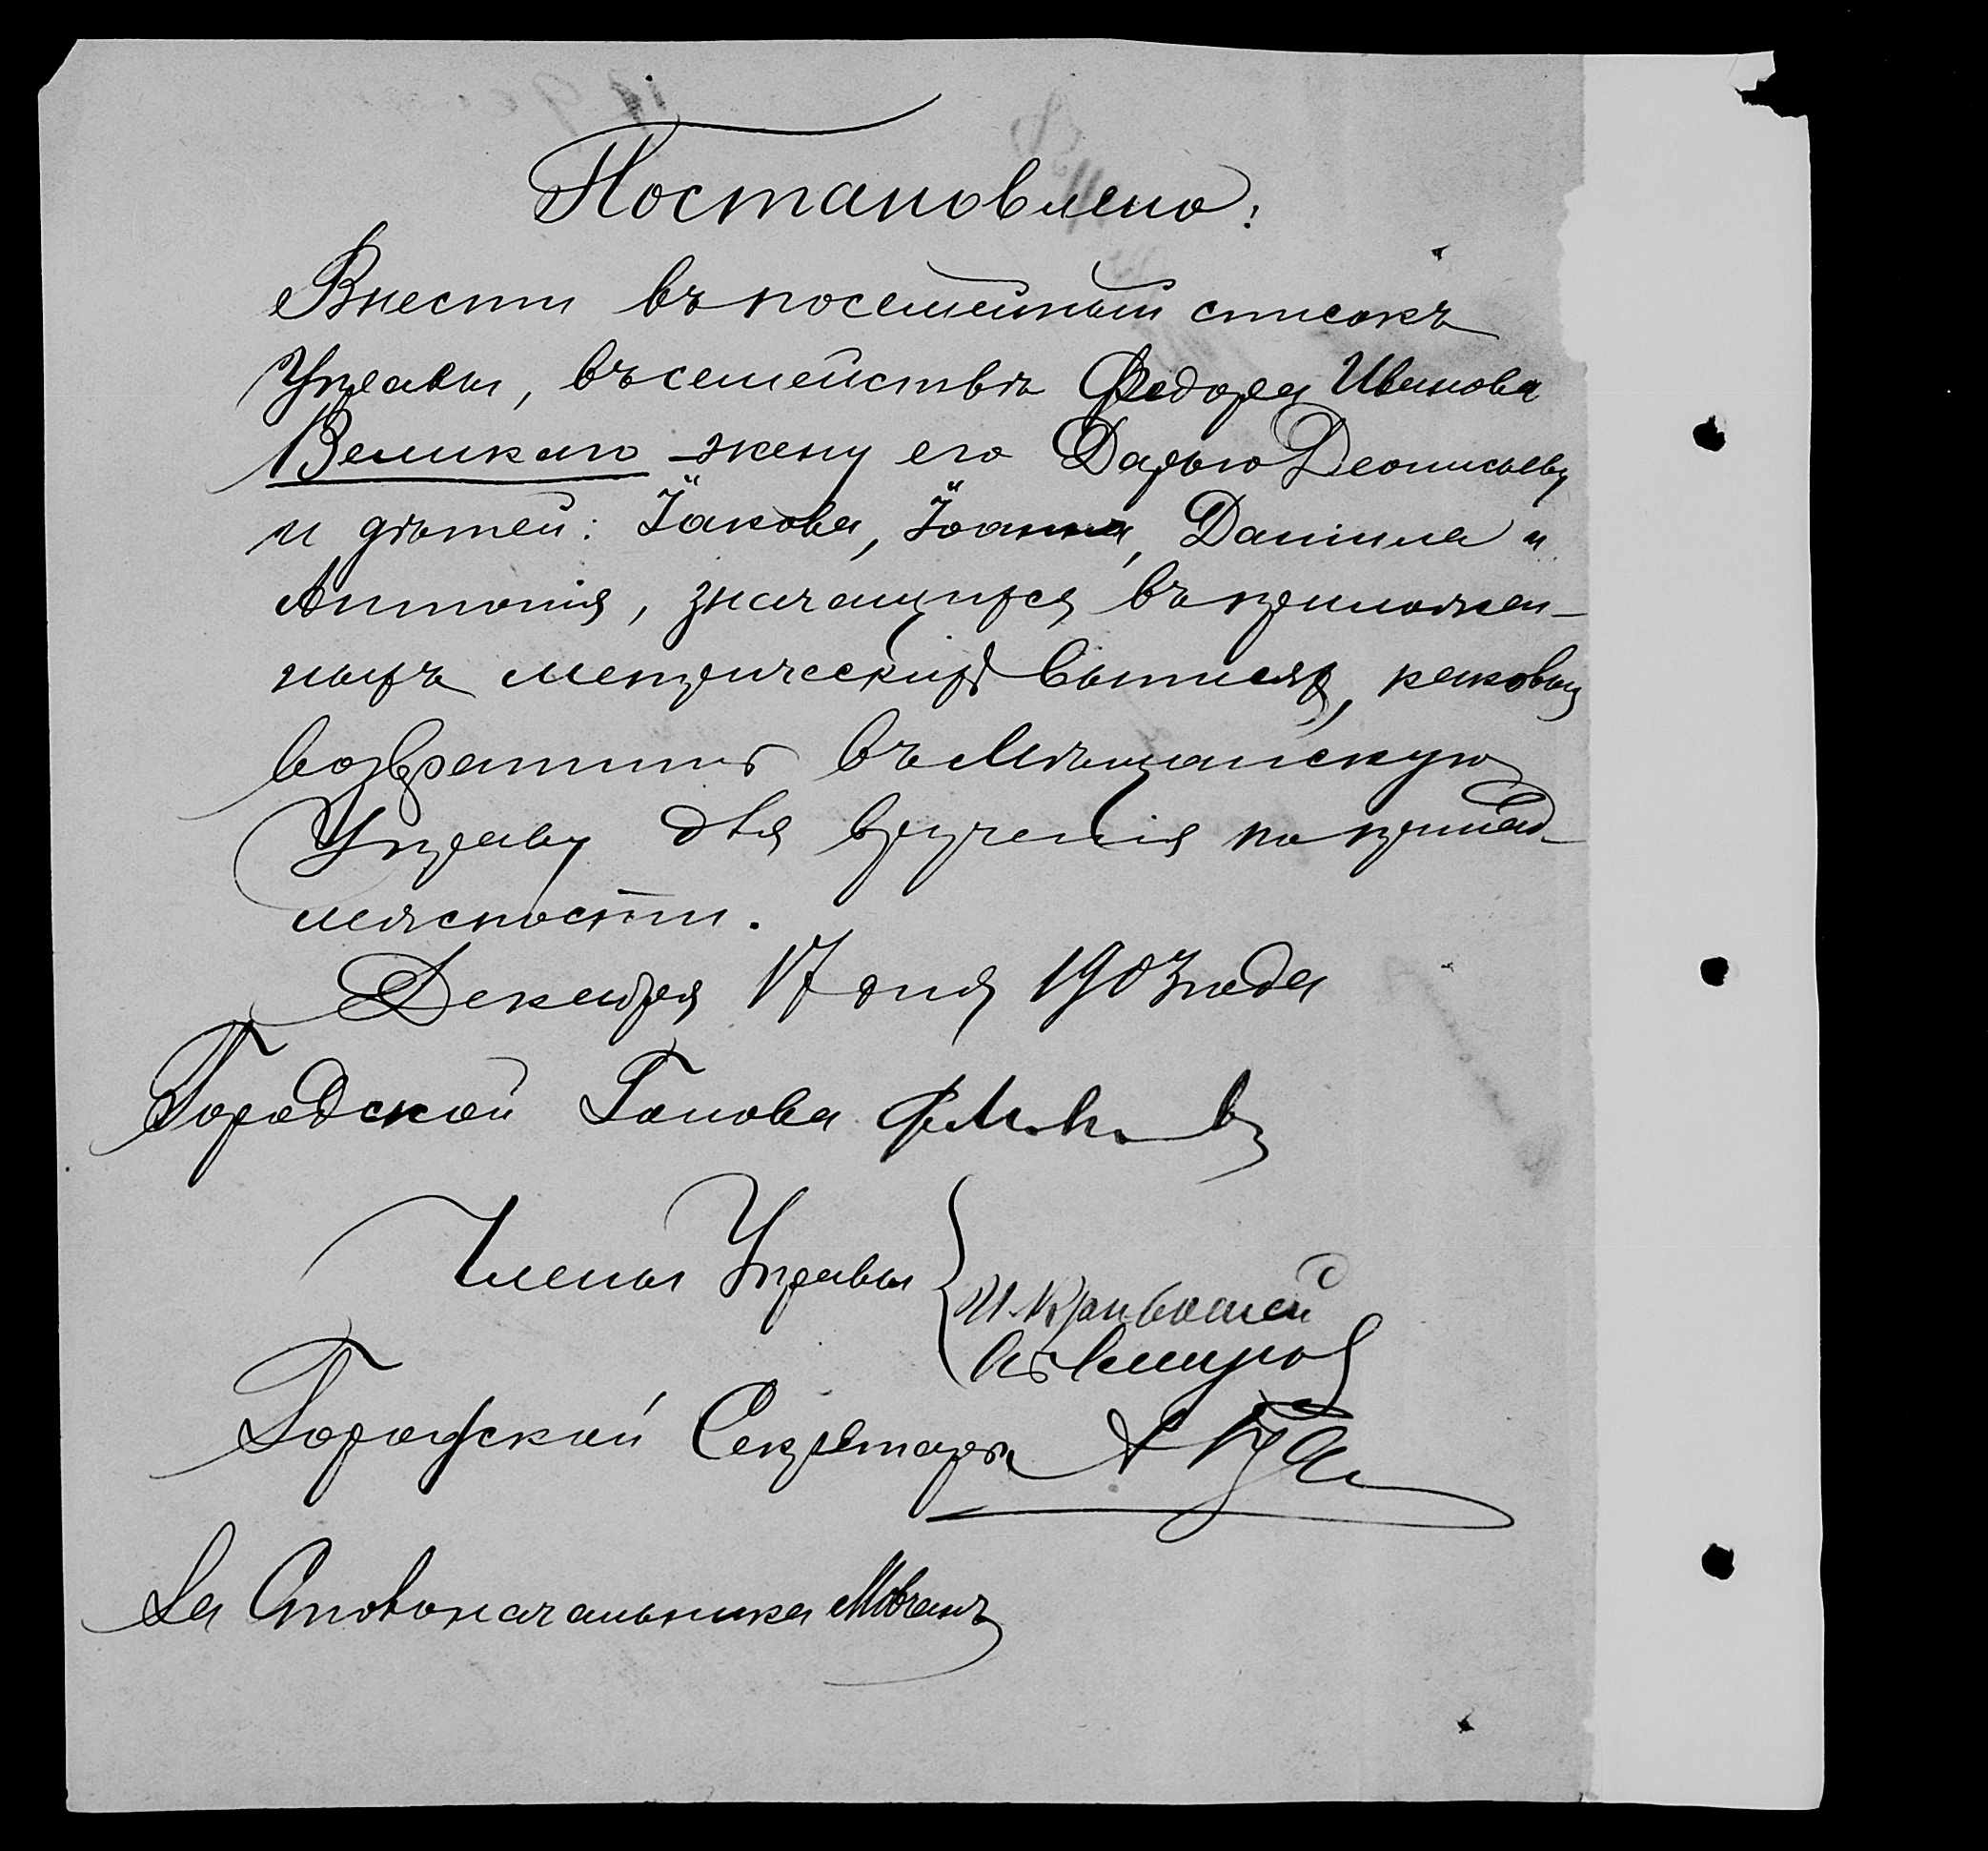 Постановлено:
Внести въ посемейный списокъ
Управы, въ семействѣ Федора Иванова
Великаго жену его Дарью Деонисьеву
и дѣтей: Іакова, Іоанна, Даніила и
Антонія, значащихся въ приложен-
ныхъ метрическихъ выписяхъ, каковыя
возвратить въ Мѣщанскую
Управу для врученія по принад-
лежности.
Декабря 17 дня 1903 года
Городской Голова
Члены Управы
И. Кривошей
Городской Секретарь
За Столоначальника Мовчанъ